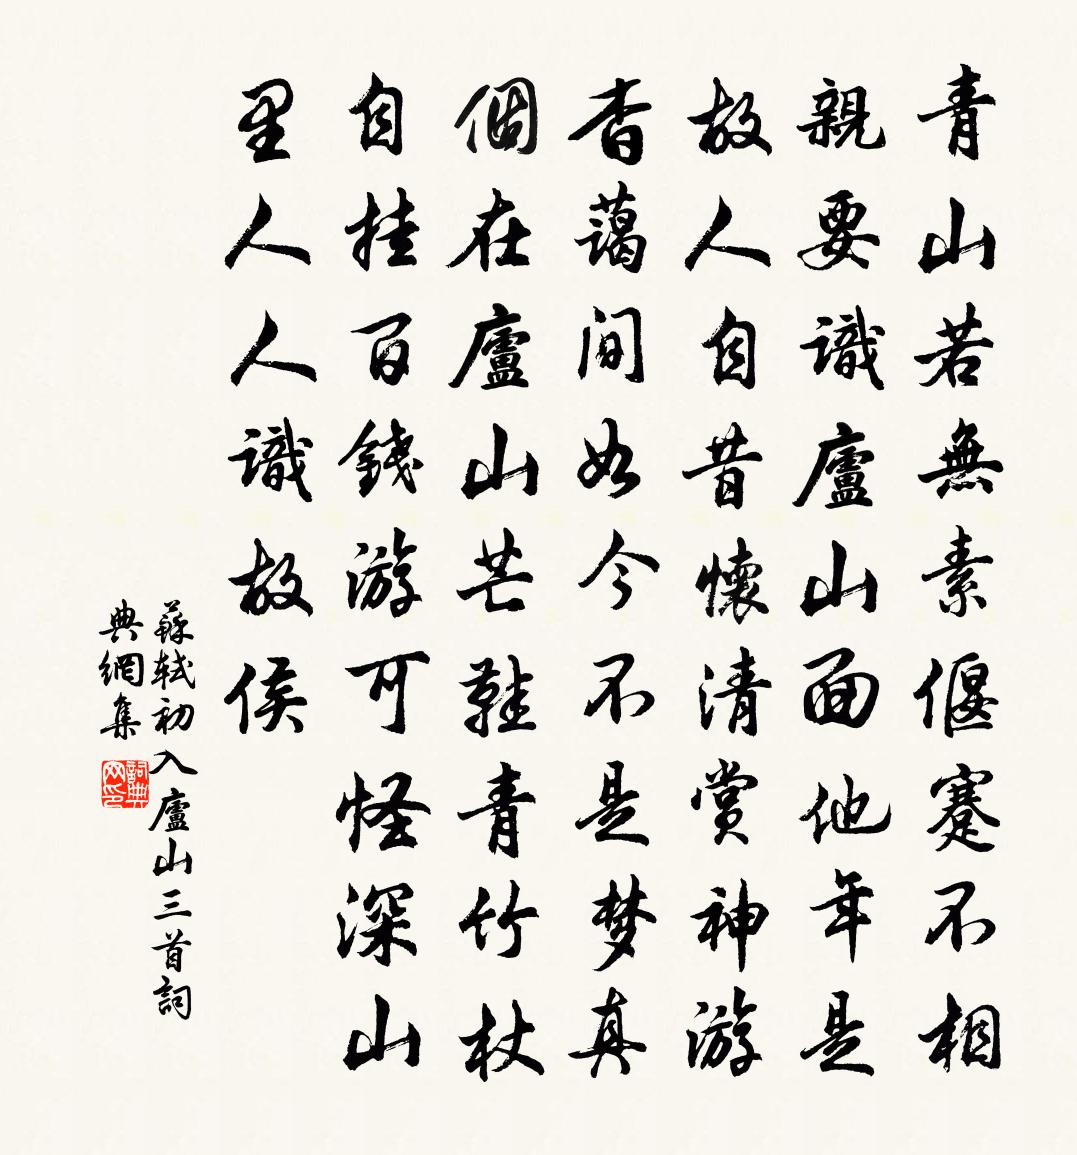 青山若無素偃蹇不相
親要識廬山面他年是
故人自昔懷清賞神游
杳藹間如今不是梦真
個在廬山芒鞋青竹杖
自挂百錢游可怪深山
里人人識故侯
蘇軾初入廬山三首詞
典網集
詞典网印